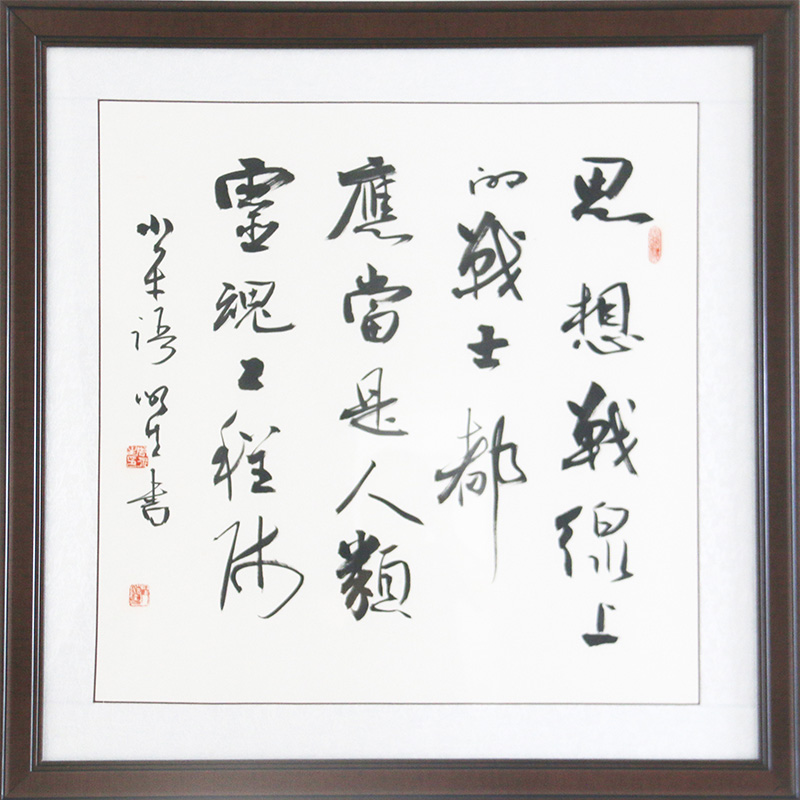 思想戰線上
的戰士都
應當是人類
靈魂工程師
小平語 明生書